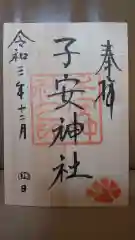 奉拝
子安神社
令和三年十二月
日